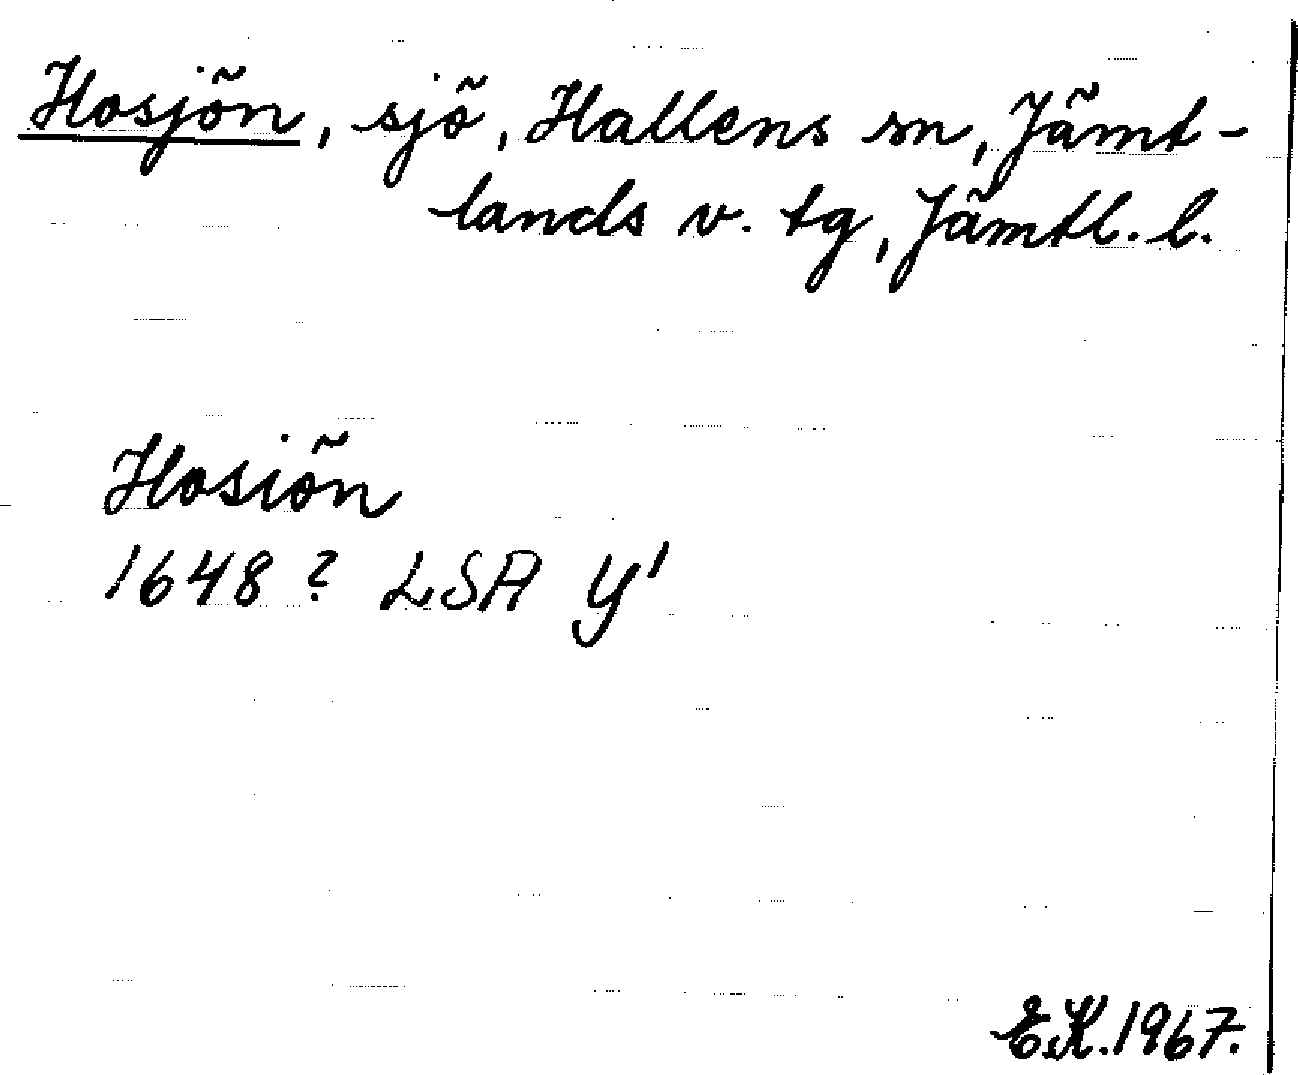 Hosjön, sjö, Hallens sn, Jämt-
lands v. tg, Jämtl. l.
Hosiön
1648? LSA Y¹
E.K. 1967.